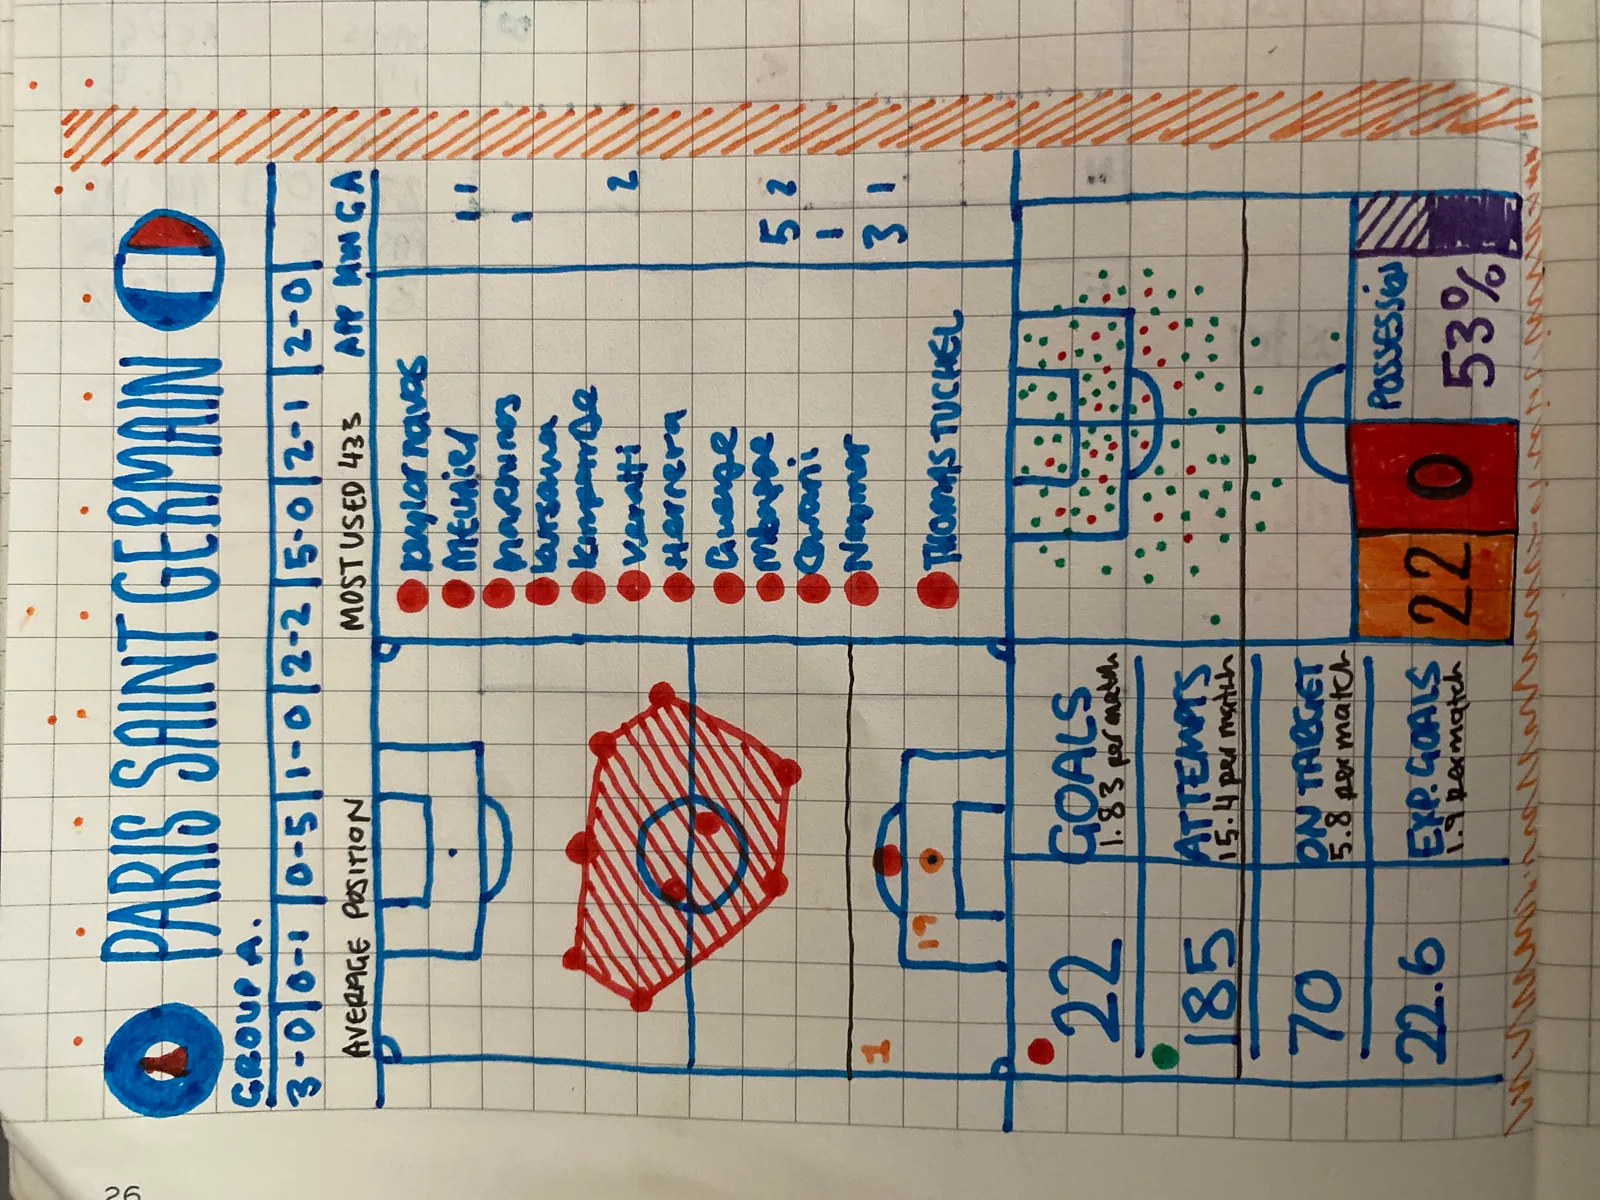 PARIS SAINT GERMAIN
GROUP A.
3-0|0-1|0-5|1-0|2-2|5-0|2-1|2-0|
AVERAGE POSITION MOST USED 433 APP MIN G A
Keylor navas
Meunier 1 1
marquinos 1
Kimpembe
Verratti 2
Herrera
Gueye
Mbappe 5 2
Cavani 1
Neymar 3 1
THOMAS TUCHEL
1
19
22 GOALS
1.83 per match
185 ATTEMPTS
15.4 per match
70 ON TARGET
5.8 per match
22.6 EXP. GOALS
1.9 per match
22 0
POSSESSION
53%
26